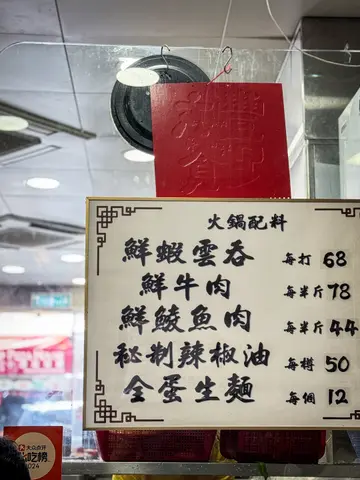 火鍋配料
鮮蝦雲吞 每打 68
鮮牛肉 每半斤 78
鮮鯪魚肉 每半斤 44
秘制辣椒油 每樽 50
全蛋生麵 每個 12
大众点评
必吃榜
2024